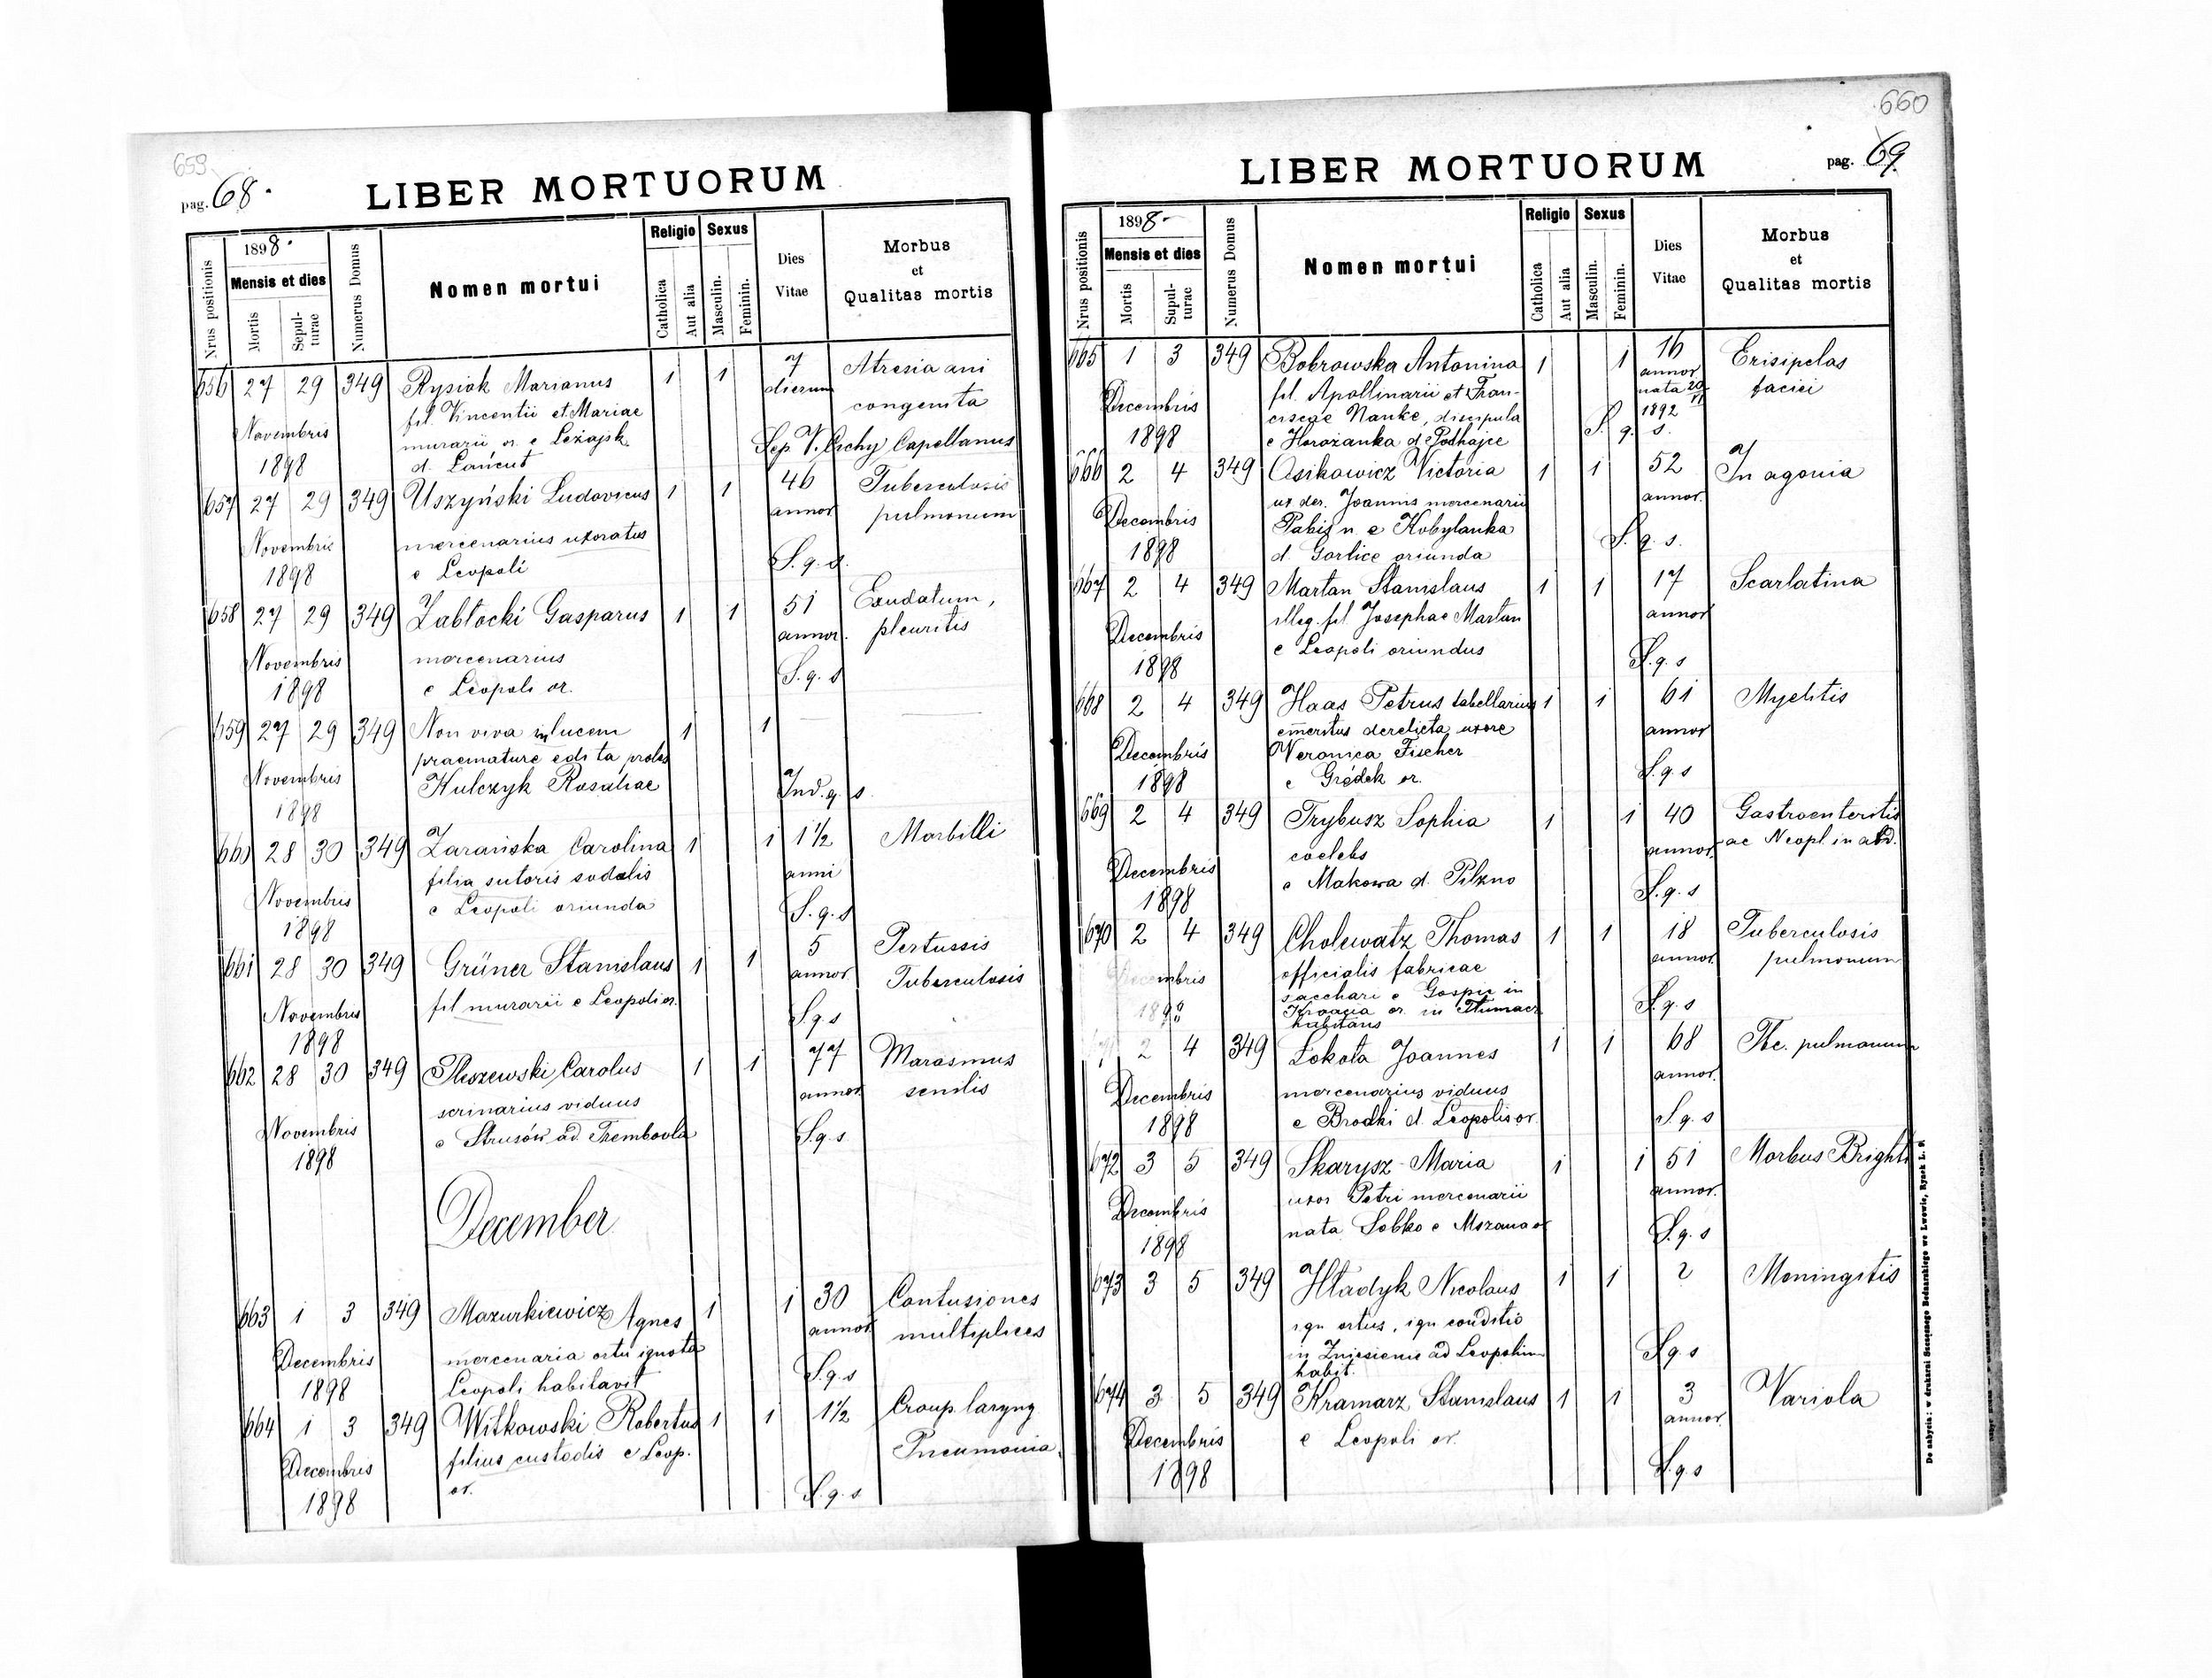 659
pag. 68.
LIBER MORTUORUM
Nrus positionis
1898.
Mensis et dies
Mortis
Sepul-
turae
Numerus Domus
Nomen mortui
Religio
Catholica
Aut alia
Sexus
Masculin.
Feminin.
Dies
Vitae
Morbus
et
Qualitas mortis
656 27 29 349 Rysiak Marianus 1 1 7 Atresia ani
dierum
fil. Vincentii et Mariae congenita
Novembris murarii or. e Leżajsk Sep V. Cichy Capellanus
1898 d. Łańcut
657 27 29 349 Uszyński Ludovicus 1 1 46 Tuberculosis
annor pulmonum
Novembris mercenarius uxoratus
1898 e Leopoli S. q. s.
658 27 29 349 Zabłocki Gasparus 1 1 51 Exudatum,
annor. pleuritis
Novembris mercenarius
1898 e Leopoli or. S. q. s
659 27 29 349 Non viva in lucem 1 1
praemature edita proles
Novembris Kulczyk Rosaliae Ind. q. s.
1898
660 28 30 349 Zarańska Carolina 1 1 1½ Morbilli
filia sutoris sodalis anni
Novembris e Leopoli oriunda S. q. s
1898
661 28 30 349 Grüner Stanislaus 1 1 5 Pertussis
annor Tuberculosis
Novembris fil murarii e Leopoli or. S. q. s
1898
662 28 30 349 Pleszewski Carolus 1 1 77 Marasmus
annor senilis
scrinarius viduus
Novembris e Strusów ad Trembovla S. q. s
1898
December
663 1 3 349 Mazurkiewicz Agnes 1 1 30 Contusiones
annor multiplices
Decembris mercenaria ortu ignota
1898 Leopoli habitavit S. q. s
664 1 3 349 Witkowski Robertus 1 1 1½ Croup laryng
Decembris filius custodis e Leop. Pneumonia
1898 or. S. q. s
660
pag. 69.
LIBER MORTUORUM
Nrus positionis
1898
Mensis et dies
Mortis
Supul-
turae
Numerus Domus
Nomen mortui
Religio
Catholica
Aut alia
Sexus
Masculin.
Feminin.
Dies
Vitae
Morbus
et
Qualitas mortis
665 1 3 349 Bobrowska Antonina 1 1 16 Erisipelas
annor
fil. Apollinarii et Fran- nata 20 faciei
Decembris ciscae Nanke, discipula 1892
1898 e Horożanka d. Podhajce S. q. s.
666 2 4 349 Osikowicz Victoria 1 1 52 In agonia
ux der. Joannis mercenarii annor.
Decembris Pabis n e Kobylanka
1898 d. Gorlice oriunda S. q. s.
667 2 4 349 Martan Stanislaus 1 1 17 Scarlatina
illeg. fil Josephae Martan annor
Decembris e Leopoli oriundus
1898 S. q. s
668 2 4 349 Haas Petrus tabellarius 1 1 61 Myelitis
emeritus derelicta uxore annor
Decembris Veronica Fischer
1898 e Gródek or. S. q. s
669 2 4 349 Trybusz Sophia 1 1 40 Gastroenteritis
coelebs annor ac Neopl. in abd.
Decembris e Makowa d. Pilzno
1898 S. q. s
670 2 4 349 Cholewatz Thomas 1 1 18 Tuberculosis
officialis fabricae annor. pulmonum
Decembris sacchari e Gospic in
1898 Kroacia or. in Tłumacz S. q. s
habitans
2 4 349 Łokota Joannes 1 1 68 Tbc. pulmonum
annor.
Decembris mercenarius viduus
1898 e Brodki d. Leopolis or. S. q. s
672 3 5 349 Skarysz Maria 1 1 51 Morbus Brighti
Decembris uxor Petri mercenarii annor.
1898 nata Sobko e Mszana or S. q. s
673 3 5 349 Hładyk Nicolaus 1 1 2 Meningitis
ign ortus, ign conditio
in Zniesienie ad Leopolim S. q. s
habit.
674 3 5 349 Kramarz Stanislaus 1 1 3 Variola
annor.
Decembris e Leopoli or.
1898 S. q. s
Do nabycia: w drukarni Szczęsnego Bednarskiego we Lwowie, Rynek L. 9.